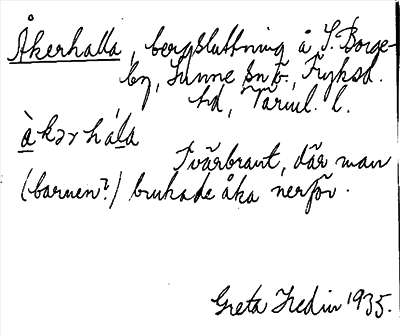 Åkerhalla, bergsluttning å S. Borge-
by, Sunne sn o.,  Fryksd.
hd, Värml. l.
àkərhála
Tvärbrant, där man
(barnen?) brukade åka nerför.
Greta Hedin 1935.